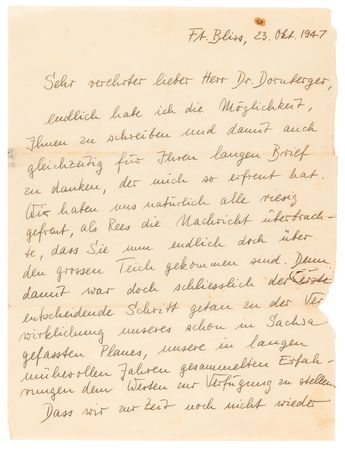 Ft. Bliss, 23. Okt. 1947
Sehr verehrter lieber Herr Dr. Dornberger,
endlich habe ich die Möglichkeit,
Ihnen zu schreiben und damit auch
gleichzeitig für Ihren langen Brief
zu danken, der mich so erfreut hat.
Wir haben uns natürlich alle riesig
gefreut, als Rees die Nachricht überbrach-
te, dass Sie nun endlich doch über
den grossen Teich gekommen sind. Denn
damit war doch schliesslich der erste
entscheidende Schritt getan zu der Ver
wirklichung unseres schon in
gefassten Planes, unsere in langen
mühevollen Jahren gesammelten Erfah-
rungen dem Westen zur Verfügung zu stellen.
Dass wir zur Zeit noch nicht wieder